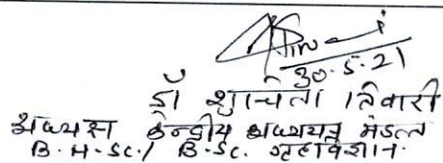 30.5.21
डॉ शुचिता तिवारी
अध्यक्ष केन्द्रीय अध्ययन मंडल
B.H.Sc./ B.Sc. गृहविज्ञान.